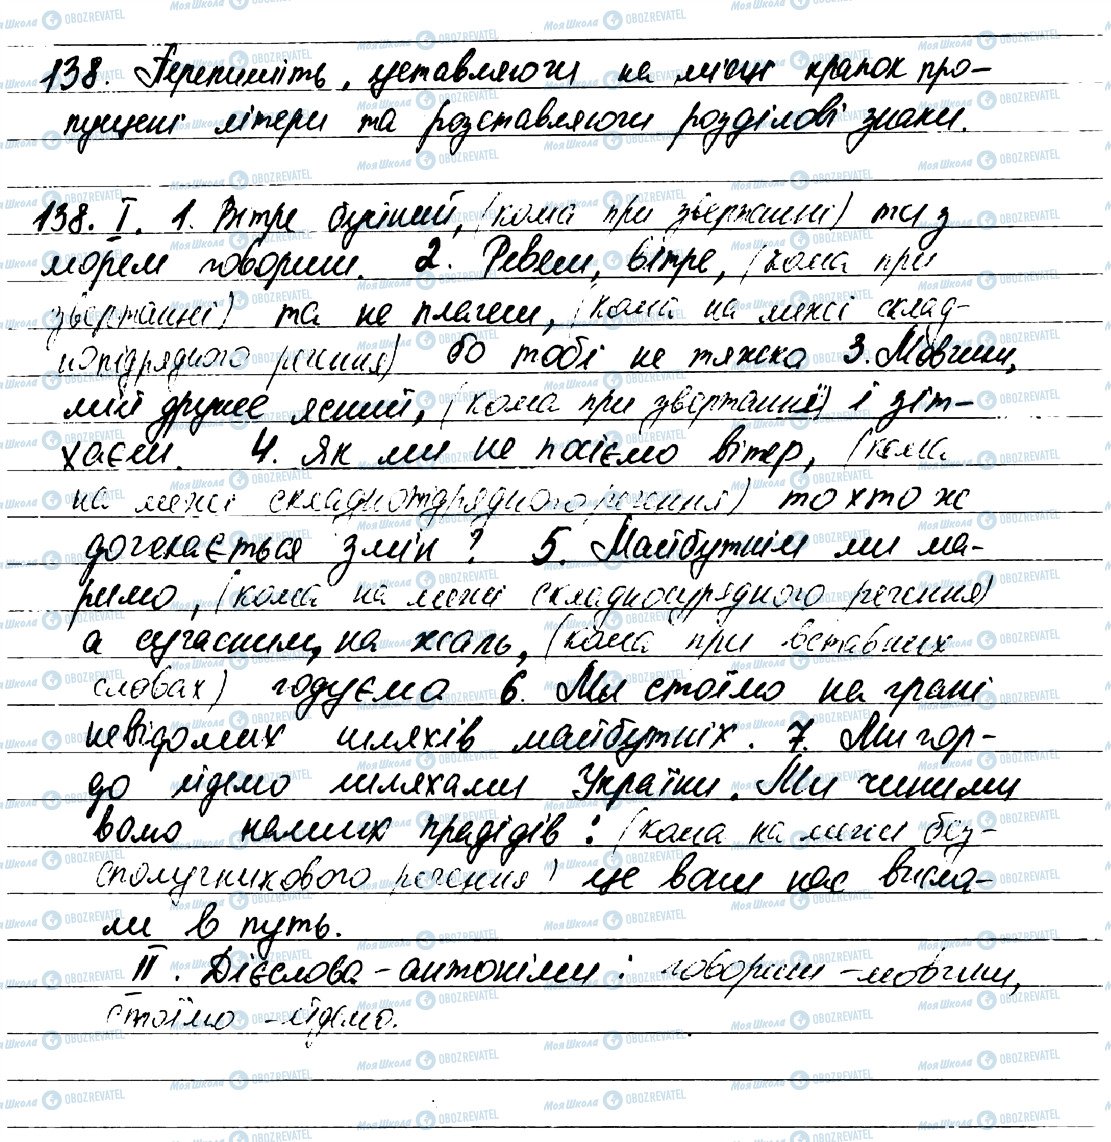 138. Перепишіть, уставляючи на місці крапок про-
пущені літери та розставляючи розділові знаки.
138. I. 1. Вітре буйний, (кома при звертанні) ти з
морем говориш. 2. Ревеш, вітре, (кома при
звертанні) та не плачеш, (кома на межі склад-
нопідрядного речення) бо тобі не тяжко 3. Мовчиш,
мій друже ясний, (кома при звертанні) і зіт-
хаєш. 4. Як ми не посіємо вітер, (кома
на межі складнопідрядного речення) то хто ж
дочекається змін? 5. Майбутнім ми ма-
римо, (кома на межі складносурядного речення)
а сучасним, на жаль, (кома при вставних
словах) годуємо 6. Ми стоїмо на грані
невідомих шляхів майбутніх. 7. Ми гор-
до йдемо шляхами України. Ми чинимо
волю наших прадідів: (кома на межі без-
сполучникового речення) це вони нас висла-
ли в путь.
II. Дієслова-антоніми: говориш - мовчиш,
стоїмо - йдемо.